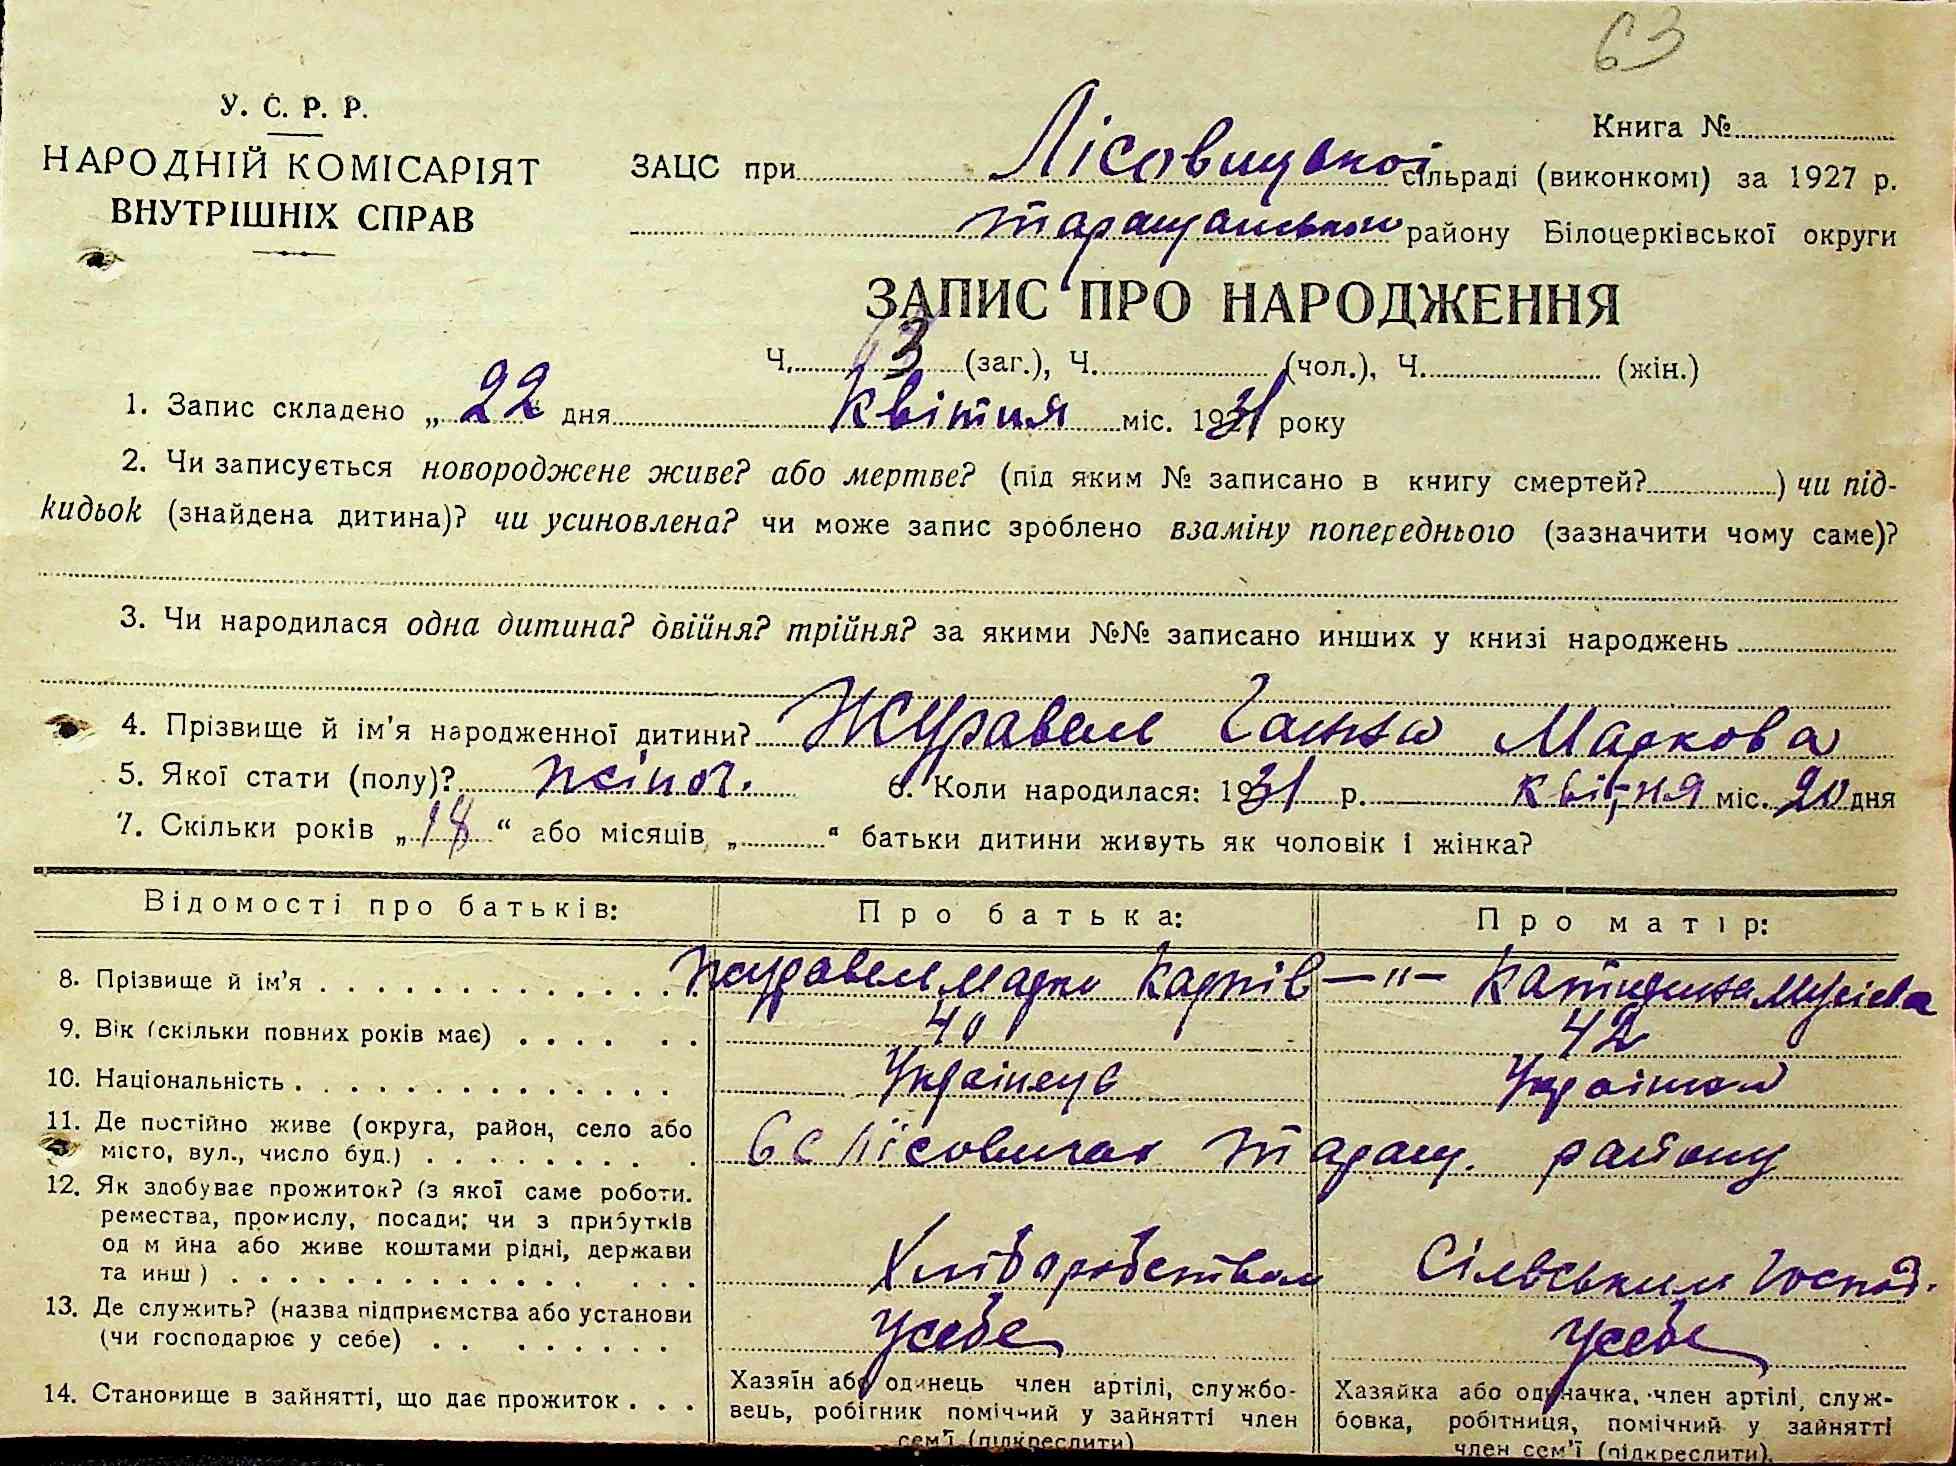 63
У. С. Р. Р.
НАРОДНІЙ КОМІСАРІЯТ
ВНУТРІШНІХ СПРАВ
Книга №
ЗАЦС при Лісовицької сільраді (виконкомі) за 1927 р.
Таращанського району Білоцерківської округи
ЗАПИС ПРО НАРОДЖЕННЯ
Ч. 63 (заг.), Ч. (чол.), Ч. (жін.)
1. Запис складено „ 22 “ дня Квітня міс. 1931 року
2. Чи записується новороджене живе? або мертве? (під яким № записано в книгу смертей? ) чи під-
кидьок (знайдена дитина)? чи усиновлена? чи може запис зроблено взаміну попереднього (зазначити чому саме)?
3. Чи народилася одна дитина? двійня? трійня? за якими №№ записано инших у книзі народжень
4. Прізвище й ім'я народженної дитини? Журавель Ганна Маркова
5. Якої стати (полу)? жіноч. 6. Коли народилася: 1931 р. квітня міс. 20 дня
7. Скільки років „ 18 “ або місяців „ “ батьки дитини живуть як чоловік і жінка?
Відомості про батьків: Про батька: Про матір:
8. Прізвище й ім'я Журавель Марко Карпів —"— Катерина Мусієва
9. Вік (скільки повних років має) 40 42
10. Національність Українець Українка
11. Де постійно живе (округа, район, село або
місто, вул., число буд.) в с Лісовичах Таращ. району
12. Як здобуває прожиток? (з якої саме роботи.
ремества, промислу, посади; чи з прибутків
од м йна або живе коштами рідні, держави
та инш) Хліборобством Сільським господ.
13. Де служить? (назва підприємства або установи
(чи господарює у себе) Усебе Усебе
14. Становище в зайнятті, що дає прожиток
Хазяїн або одинець член артілі, службо-
вець, робітник помічний у зайнятті член
сем'ї (підкреслити)
Хазяйка або одиначка, член артілі, служ-
бовка, робітниця, помічний у зайнятті
член сем'ї (підкреслити).